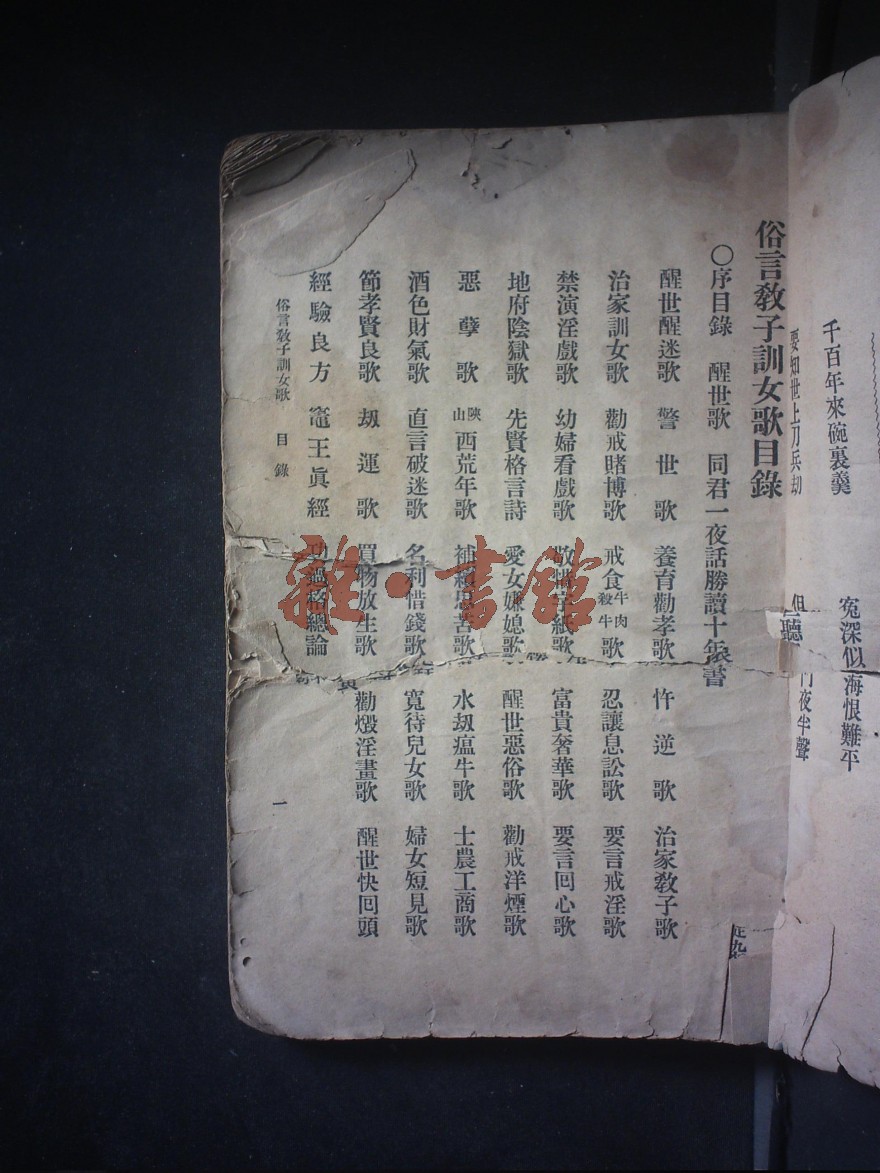 千百年來碗裏羹
冤深似海恨難平
要知世上刀兵劫
但聽 門夜半聲
俗言教子訓女歌目錄
〇序目錄 醒世歌 同君一夜話勝讀十年書
醒世醒迷歌 警世歌 養育勸孝歌 忤逆歌 治家教子歌
治家訓女歌 勸戒賭博歌 戒食牛肉殺牛歌 忍讓息訟歌 要言戒淫歌
禁演淫戲歌 幼婦看戲歌 敬惜字紙歌 富貴奢華歌 要言回心歌
地府陰獄歌 先賢格言詩 愛女嫌媳歌 醒世惡俗歌 勸戒洋煙歌
惡孽歌 陝山西荒年歌 補 思苦歌 水刼瘟牛歌 士農工商歌
酒色財氣歌 直言破迷歌 名利借錢歌 寬待兒女歌 婦女短見歌
節孝賢良歌 刼運歌 買物放生歌 勸燬淫畫歌 醒世快回頭
經驗良方 竈王眞經 功過格總論
俗言教子訓女歌 目錄
一
雜·書館